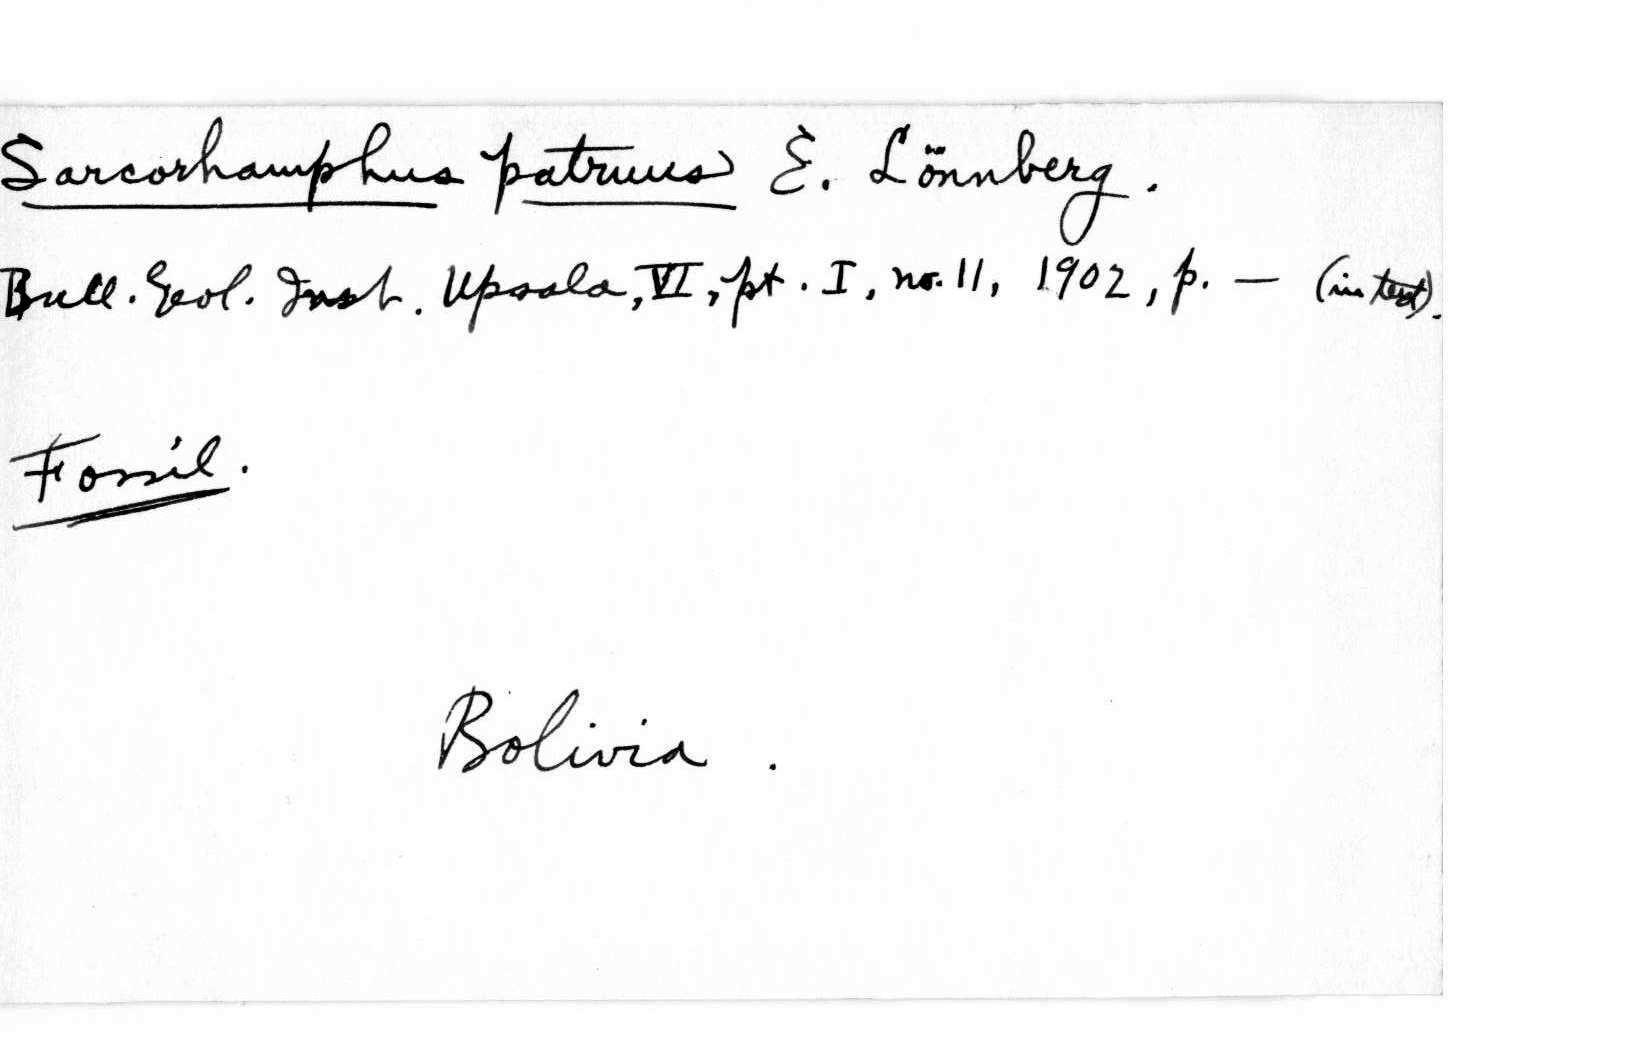 Sarcorhamphus patruus E. Lönnberg.
Bull. Geol. Inst. Upsala, VI, pt. I, no. 11, 1902, p. — (in text).
Fossil.
Bolivia.